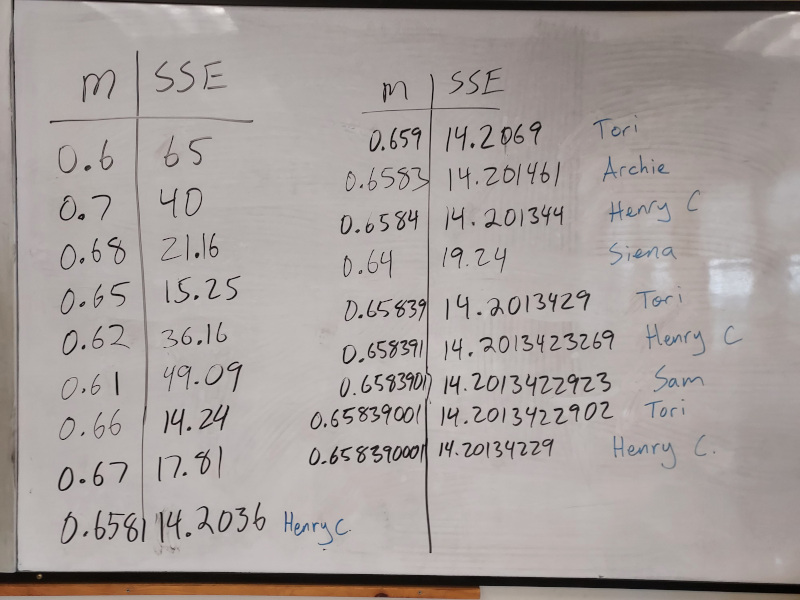 m SSE
0.6 65
0.7 40
0.68 21.16
0.65 15.25
0.62 36.16
0.61 49.09
0.66 14.24
0.67 17.81
0.6581 14.2036 Henry C.
m SSE
0.659 14.2069 Tori
0.6583 14.201461 Archie
0.6584 14.201344 Henry C
0.64 19.24 Siena
0.65839 14.2013429 Tori
0.658391 14.2013423269 Henry C
0.6583901 14.2013422923 Sam
0.65839001 14.2013422902 Tori
0.658390001 14.20134229 Henry C.